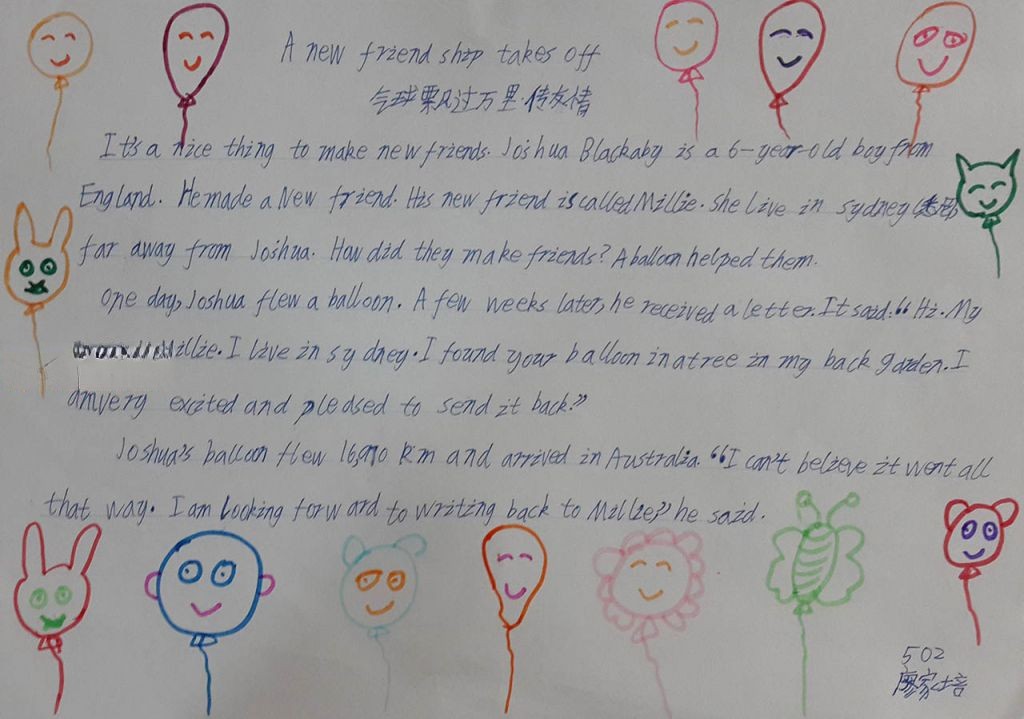 A new friend ship takes off
气球飘过万里传友情
It's a nice thing to make new friends. Joshua Blackaby is a 6-year-old boy from
England. He made a New friend. His new friend is called Millie. She live in sydney (悉尼)
far away from Joshua. How did they make friends? A balloon helped them.
One day, Joshua flew a balloon. A few weeks later, he received a letter. It said: "Hi. My
Millie. I live in sydney. I found your balloon in a tree in my back garden. I
am very excited and pleased to send it back."
Joshua's balloon flew km and arrived in Australia. "I can't believe it went all
that way. I am looking forward to writing back to Millie," he said.
502
廖家培